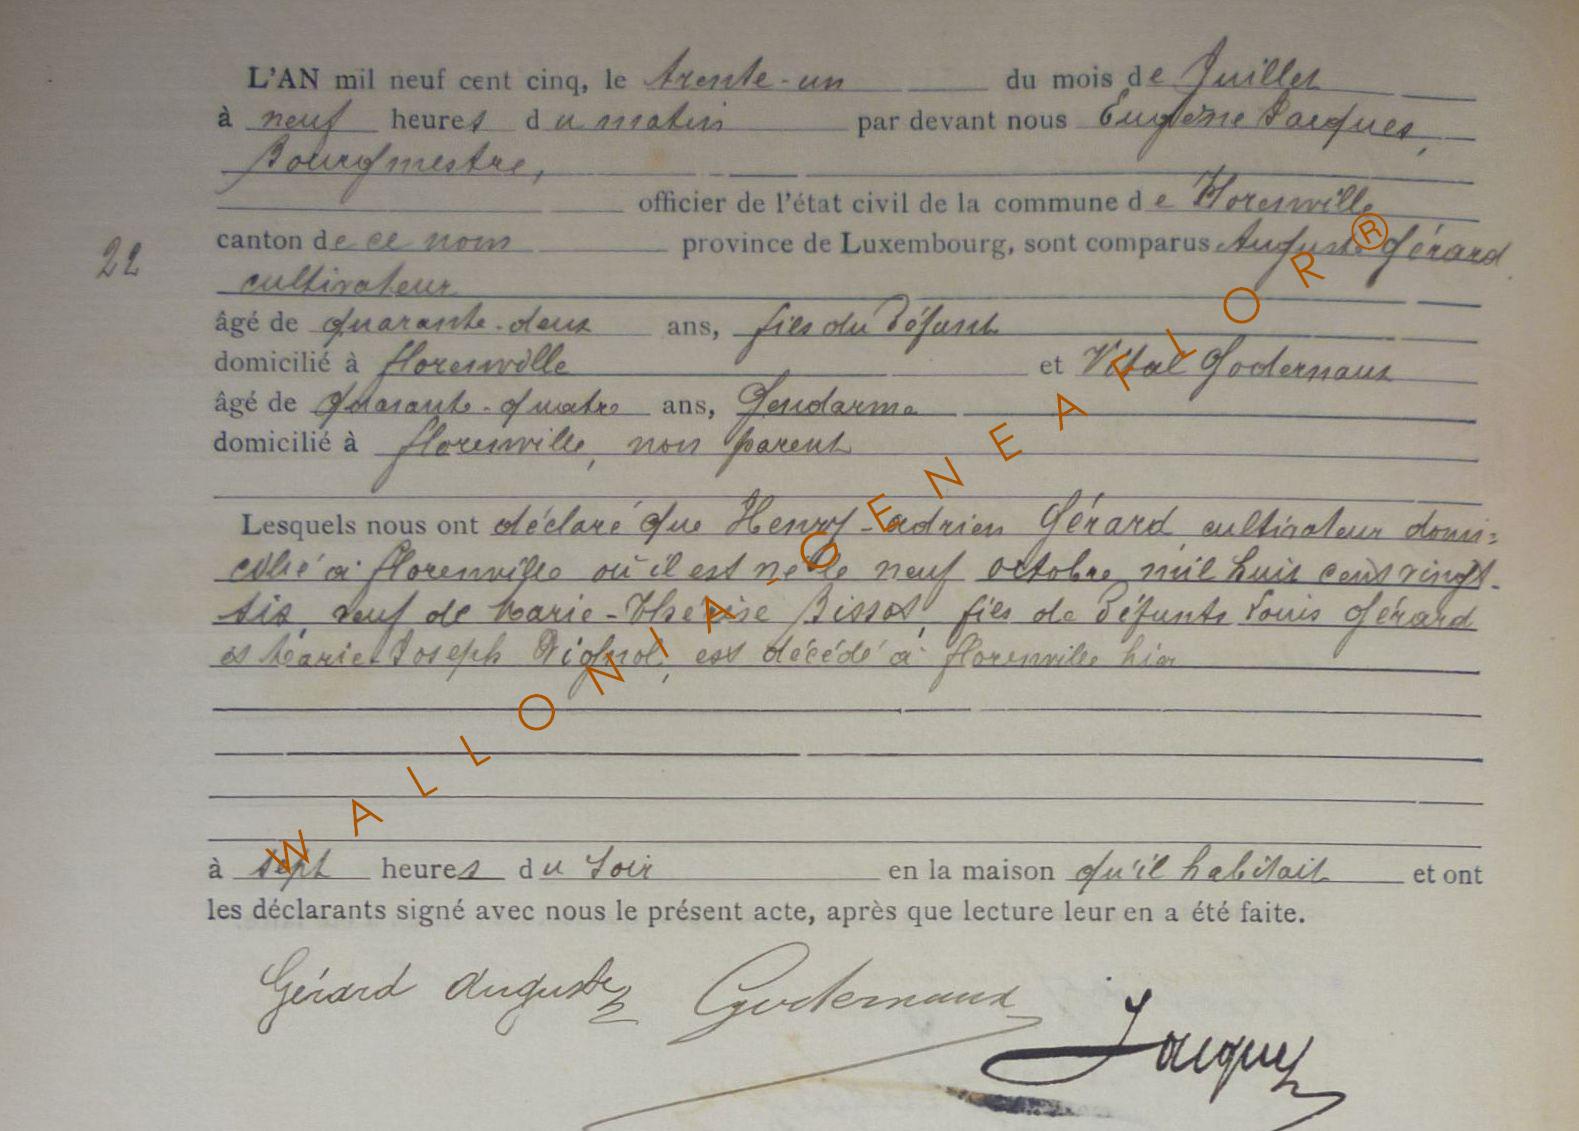 L'AN mil neuf cent cinq, le trente-un du mois de Juillet
à neuf heures du matin par devant nous Eugène Jacques,
Bourgmestre,
officier de l'état civil de la commune de Florenville
canton de ce nom province de Luxembourg, sont comparus Auguste Gérard
22
cultivateur
âgé de quarante-deux ans, fils du Défunt
domicilié à florenville et Vital Godernaux
âgé de Quarante-quatre ans, Gendarme
domicilié à florenville, non parent
Lesquels nous ont déclaré que Henry-adrien Gérard, cultivateur domi-
cilié à florenville où il est né le neuf octobre mil huit cent vingt-
six, veuf de Marie-Thérèse Bissot, fils de Défunts Louis Gérard
et Marie Joseph Pignol, est décédé à florenville hier
à sept heures du soir en la maison qu'il habitait et ont
les déclarants signé avec nous le présent acte, après que lecture leur en a été faite.
Gérard Auguste Godernaux
Jacques
WALLONIA-GENEAFLOR®